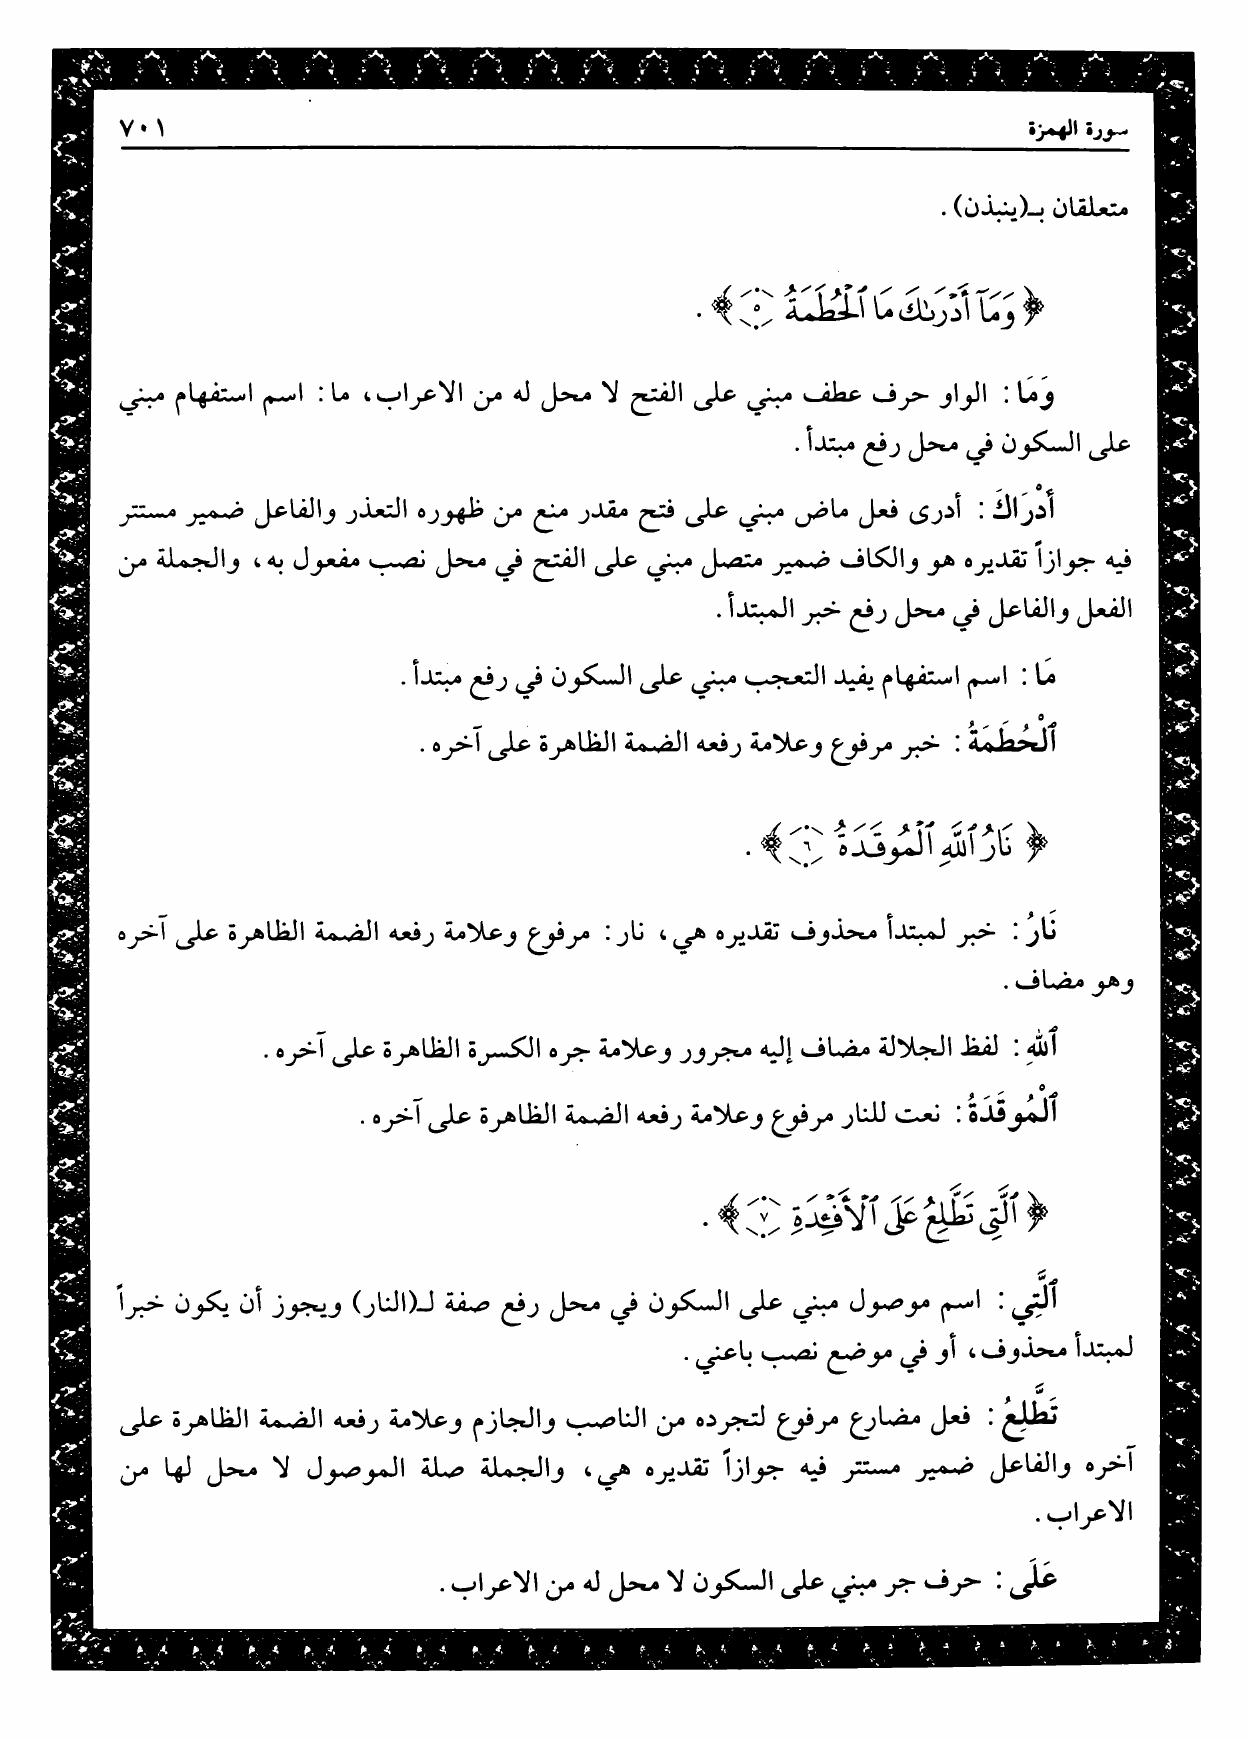 سورة الهمزة ٧٠١
متعلقان بـ(ينبذن) .
﴿ وَمَآ أَدْرَىٰكَ مَا ٱلْحُطَمَةُ ٥ ﴾ .
وَمَا : الواو حرف عطف مبني على الفتح لا محل له من الاعراب، ما : اسم استفهام مبني
على السكون في محل رفع مبتدأ .
أَدْرَاكَ : أدرى فعل ماض مبني على فتح مقدر منع من ظهوره التعذر والفاعل ضمير مستتر
فيه جوازاً تقديره هو والكاف ضمير متصل مبني على الفتح في محل نصب مفعول به، والجملة من
الفعل والفاعل في محل رفع خبر المبتدأ .
مَا : اسم استفهام يفيد التعجب مبني على السكون في رفع مبتدأ .
ٱلْحُطَمَةُ : خبر مرفوع وعلامة رفعه الضمة الظاهرة على آخره .
﴿ نَارُ ٱللَّهِ ٱلْمُوقَدَةُ ٦ ﴾ .
نَارُ : خبر لمبتدأ محذوف تقديره هي، نار : مرفوع وعلامة رفعه الضمة الظاهرة على آخره
وهو مضاف .
ٱللهِ : لفظ الجلالة مضاف إليه مجرور وعلامة جره الكسرة الظاهرة على آخره .
ٱلْمُوقَدَةُ : نعت للنار مرفوع وعلامة رفعه الضمة الظاهرة على آخره .
﴿ ٱلَّتِى تَطَّلِعُ عَلَى ٱلْأَفْـِٔدَةِ ٧ ﴾ .
ٱلَّتِي : اسم موصول مبني على السكون في محل رفع صفة لـ(النار) ويجوز أن يكون خبراً
لمبتدأ محذوف، أو في موضع نصب باعني .
تَطَّلِعُ : فعل مضارع مرفوع لتجرده من الناصب والجازم وعلامة رفعه الضمة الظاهرة على
آخره والفاعل ضمير مستتر فيه جوازاً تقديره هي، والجملة صلة الموصول لا محل لها من
الاعراب .
عَلَى : حرف جر مبني على السكون لا محل له من الاعراب .